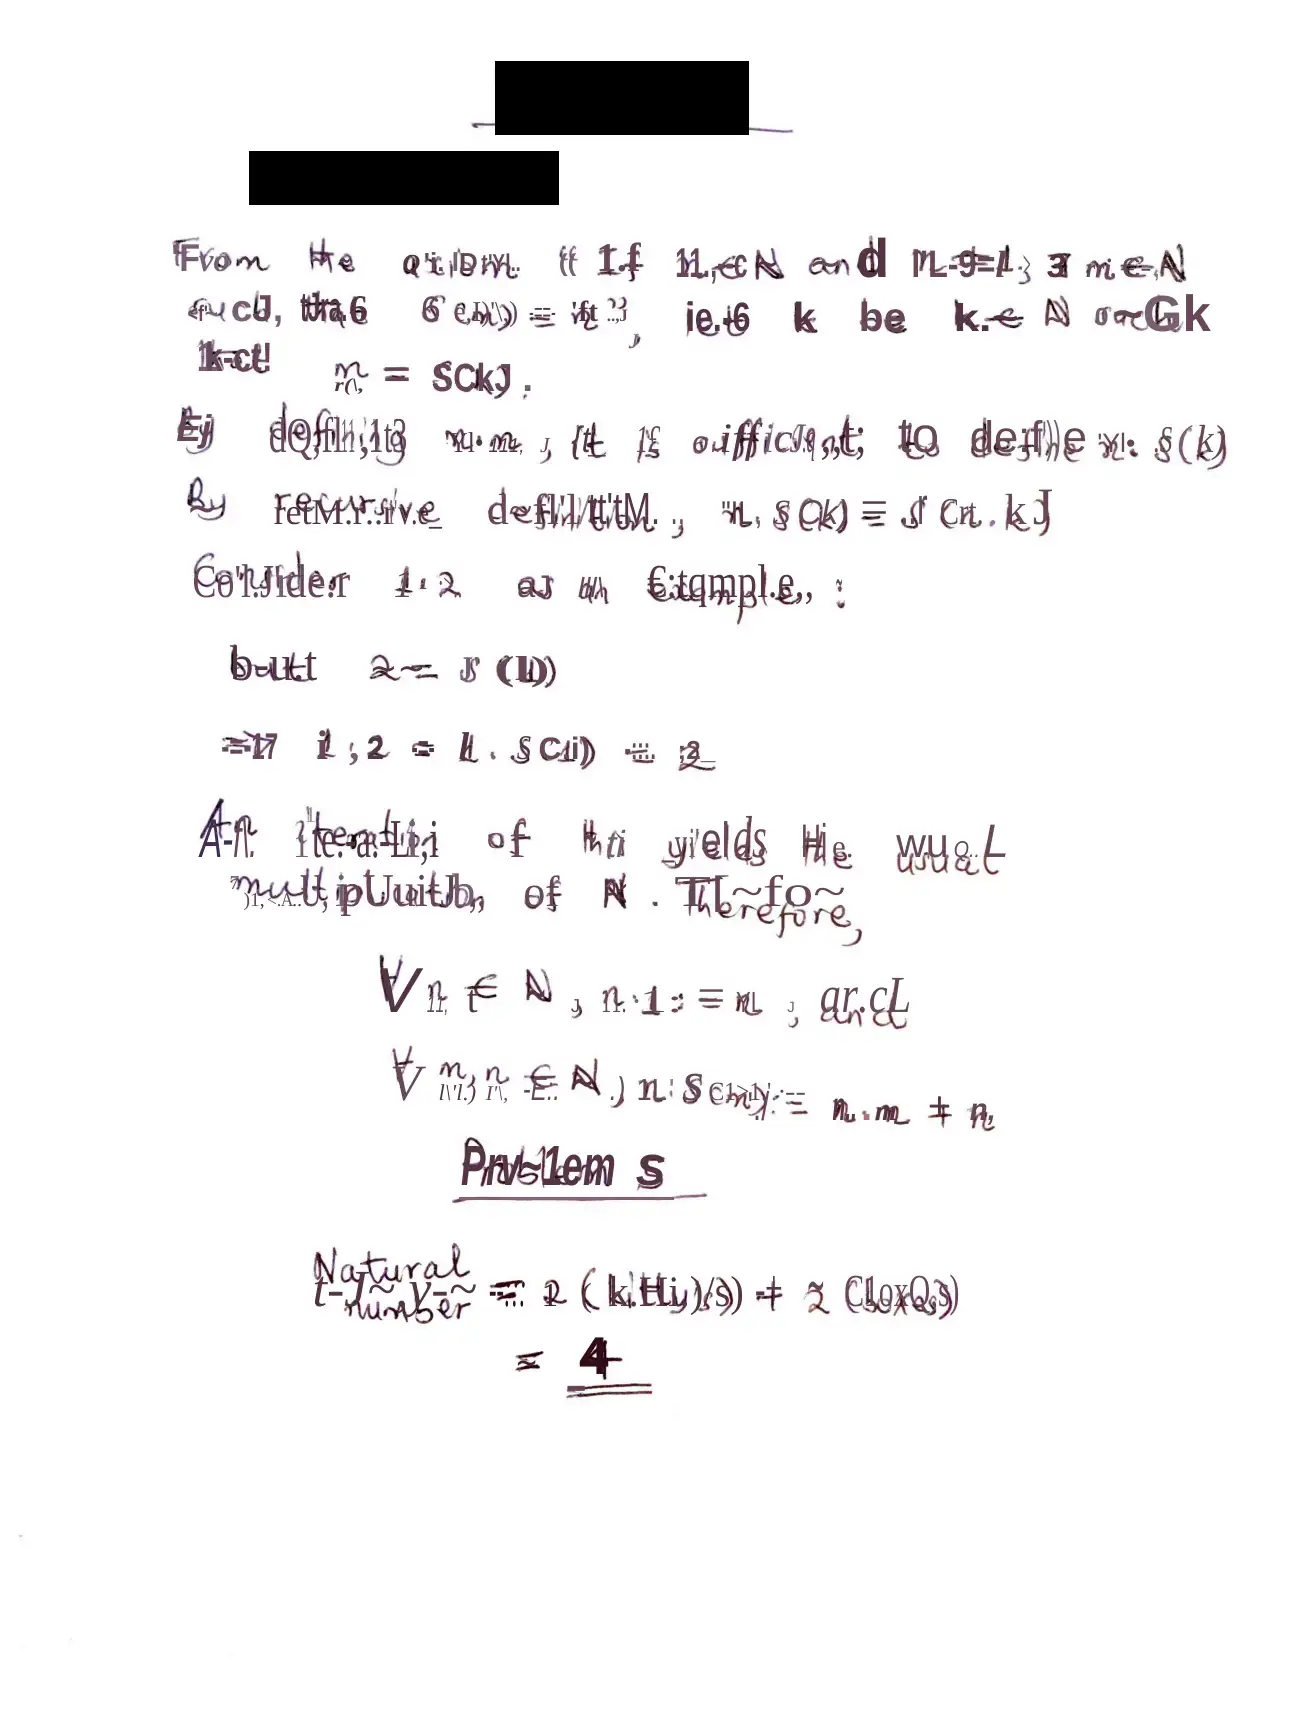 From the axiom "If n ∈ N and n ≠ 1, ∃ m ∈ N
such that S(m) = n", let k be k ∈ N such
that m = S(k).
By defining n·m, it is sufficient to define n·S(k)
By recursive definition, n.S(k) = S(n.k)
Consider 1·2 as an example:
but 2 = S(1)
=> 1·2 = 1·S(1) = 2
An iteration of this yields the usual
multiplication of N. Therefore,
∀ n ∈ N, n·1 := n, and
∀ m,n ∈ N, n·S(m) := n·m + n
Problems
Natural number = 2 ( ) + 2 (boxes)
= 4